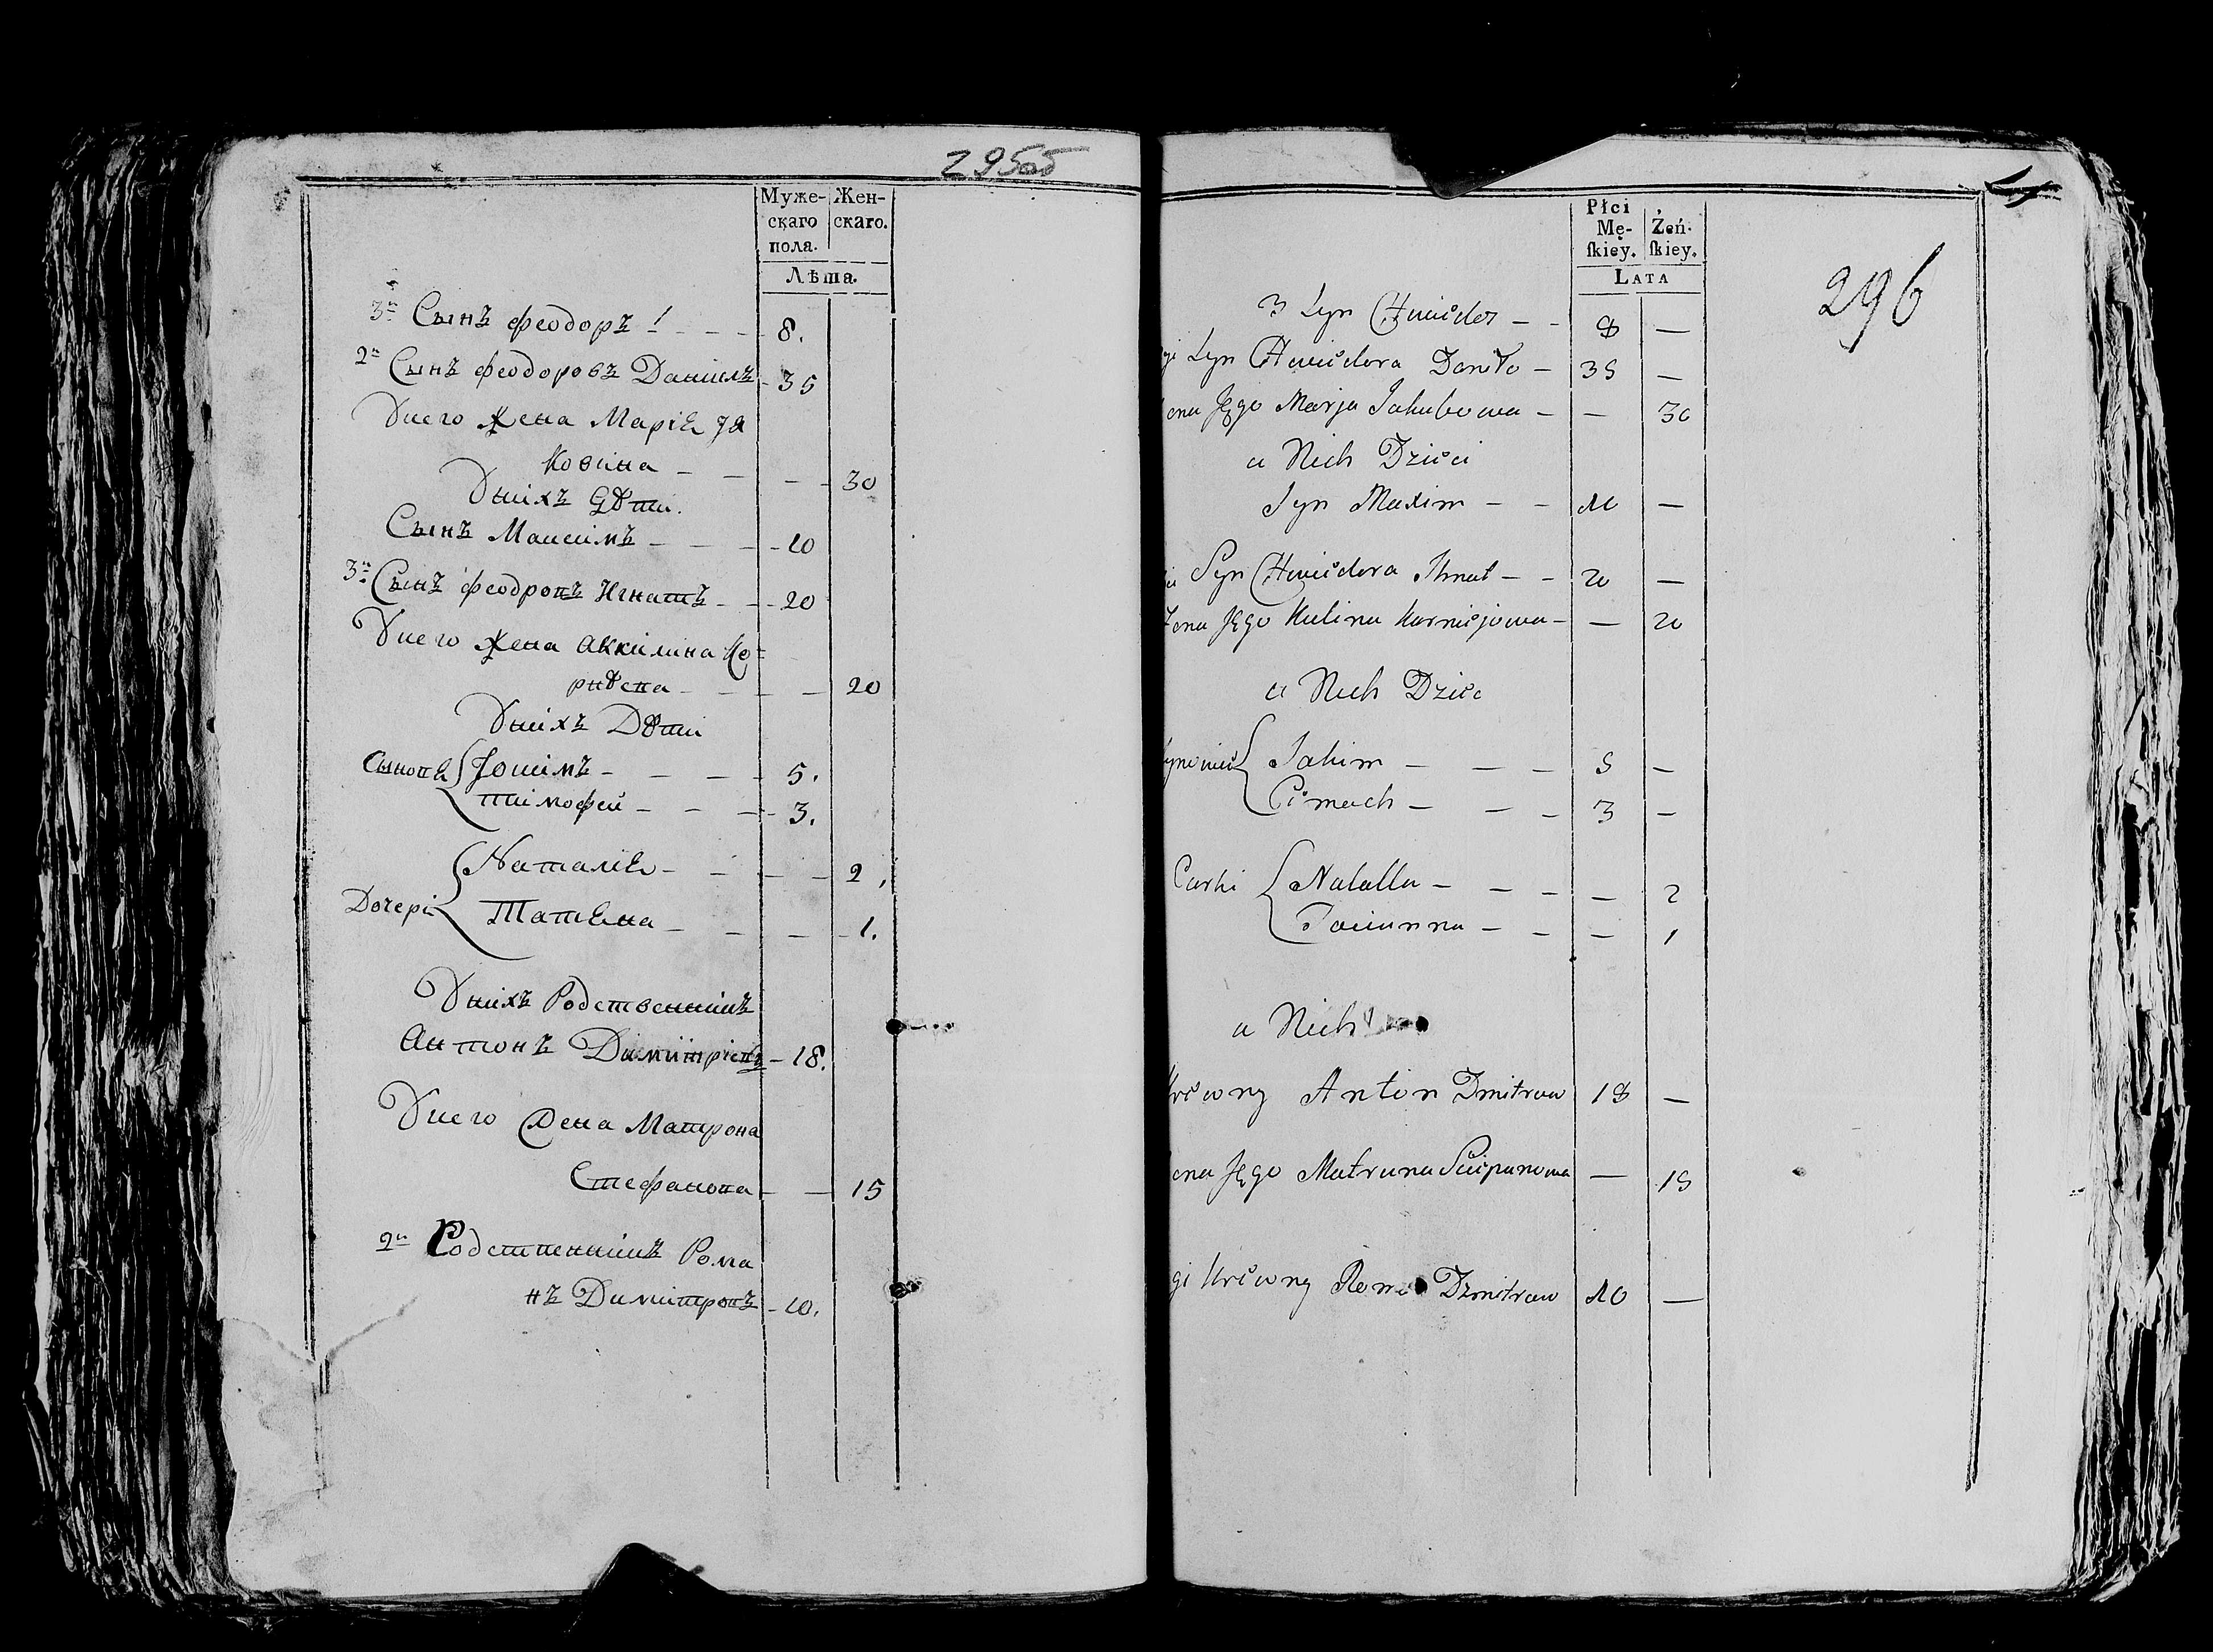 295об
Муже- Жен-
скаго скаго.
пола.
Лѣта.
3й Сынъ Феодоръ 8.
2й Сынъ Феодоровъ Данилъ 35
У него жена Марія Яа
ковина 30
У нихъ Дѣти.
Сынъ Максимъ 10
3й Сынъ Феодровъ Игнатъ 20
У него жена Аккилина Ко=
рнѣева 20
У нихъ Дѣти
Сыновя Іокимъ 5.
Тимофей 3.
Наталія 2.
Дочери Татяна 1.
У нихъ Родственникъ
Антонъ Димитріевъ 18.
У него Жена Матрона
Стефанова 15
2й Родственникъ Рома
нъ Димитровъ 10.
296
Płci
Mę- Żeń-
ſkiey. ſkiey.
LATA
3 Syn Chwiedor 8 —
gi Syn Chwiedora Daniło 35 —
ona Jęgo Marja Jakubowa — 30
u Nich Dzieci
Syn Maxim 10 —
Syn Chwiedora Ihnat 20 —
Żona Jęgo Kulina Karniejowa — 20
u Nich Dziec
ynowie Jakim 5 —
Cimoch 3 —
Curki Natalla — 2
Taciunna — 1
u Nich
krewny Anton Dmitrow 18 —
ona Jęgo Matruna Sciepanowa — 15
gi krewny Roman Dzmitrow 10 —